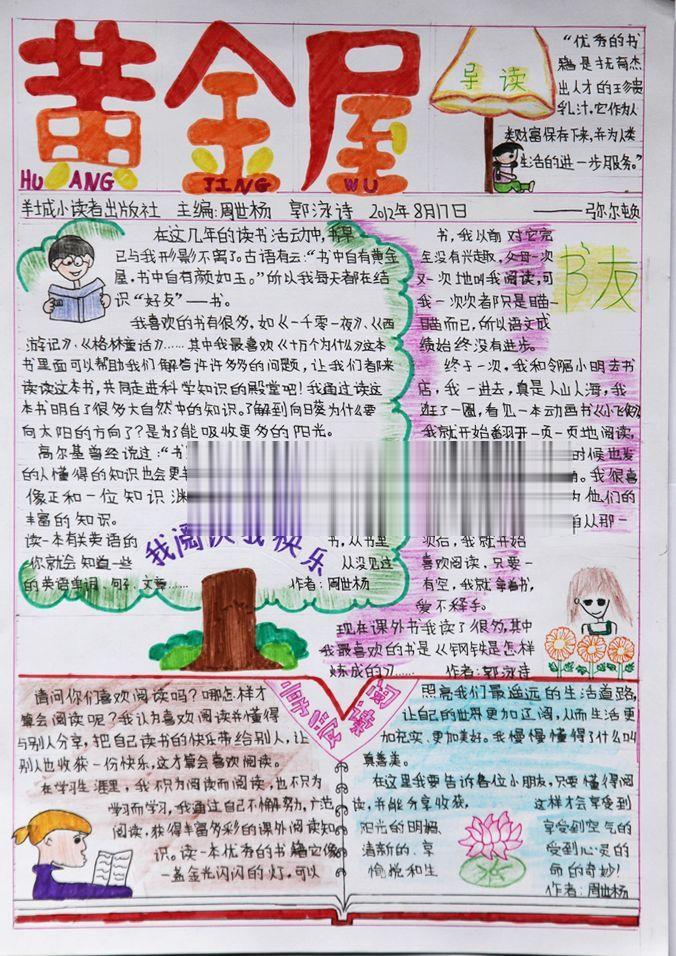 黄金屋
HUANG JING WU
导读
“优秀的书
籍是抚育杰
出人才的珍贵
乳汁,它作为人
类财富保存下来,并为人类
生活的进一步服务。”
——弥尔顿
羊城小读者出版社 主编:周世杨 郭泳诗 2012年8月17日
在这几年的读书活动中,书早
已与我形影不离了。古语有云:“书中自有黄金
屋,书中自有颜如玉。”所以我每天都在结
识“好友”——书。
我喜欢的书有很多,如《一千零一夜》、《西
游记》、《格林童话》……其中我最喜欢《十万个为什么》这本
书里面可以帮助我们解答许许多多的问题,让我们都来
读读这本书,共同走进科学知识的殿堂吧!我通过读这
本书明白了很多大自然中的知识。了解到向日葵为什么要
向太阳的方向了?是为了能吸收更多的阳光。
高尔基曾经说过:“书
的人懂得的知识也会更
像正和一位知识渊
丰富的知识。
读一本有关英语的 书,从书里
你就会知道一些 从没见过
的英语单词、句子、文章…… 作者:周世杨
我阅读我快乐
书友
书,我以前对它完
全没有兴趣,父母一次
又一次地叫我阅读,可
我一次次都只是瞄一
瞄而已,所以语文成
绩始终没有进步。
终于一次,我和邻居小明去书
店,我一进去,真是人山人海,我
逛了一圈,看见一本动画书《小飞侠》
我就开始翻开一页一页地阅读,
时候也发
。我很喜
为他们的
自从那一
次后,我就开始
喜欢阅读,只要一
有空,我就拿着书,
爱不释手。
现在课外书我读了很多,其中
我最喜欢的书是《钢铁是怎样
炼成的》…… 作者:郭泳诗
享受阅读
请问你们喜欢阅读吗?哪怎样才
算会阅读呢?我认为喜欢阅读并懂得
与别人分享,把自己读书的快乐带给别人,让
别人也收获一份快乐,这才算会喜欢阅读。
在学习生涯里,我不只为阅读而阅读,也不只为
学习而学习,我通过自己不懈努力,广泛
阅读,获得丰富多彩的课外阅读知
识。读一本优秀的书籍它像
一盏金光闪闪的灯,可以
照亮我们最遥远的生活道路,
让自己的世界更加辽阔,从而生活更
加充实、更加美好。我慢慢懂得了什么叫
真善美。
在这里我要告诉各位小朋友,只要懂得阅
读,并能分享收获, 这样才会享受到
阳光的明媚、 享受到空气的
清新的、享 受到心灵的
愉悦和生 命的奇妙!
作者:周世杨